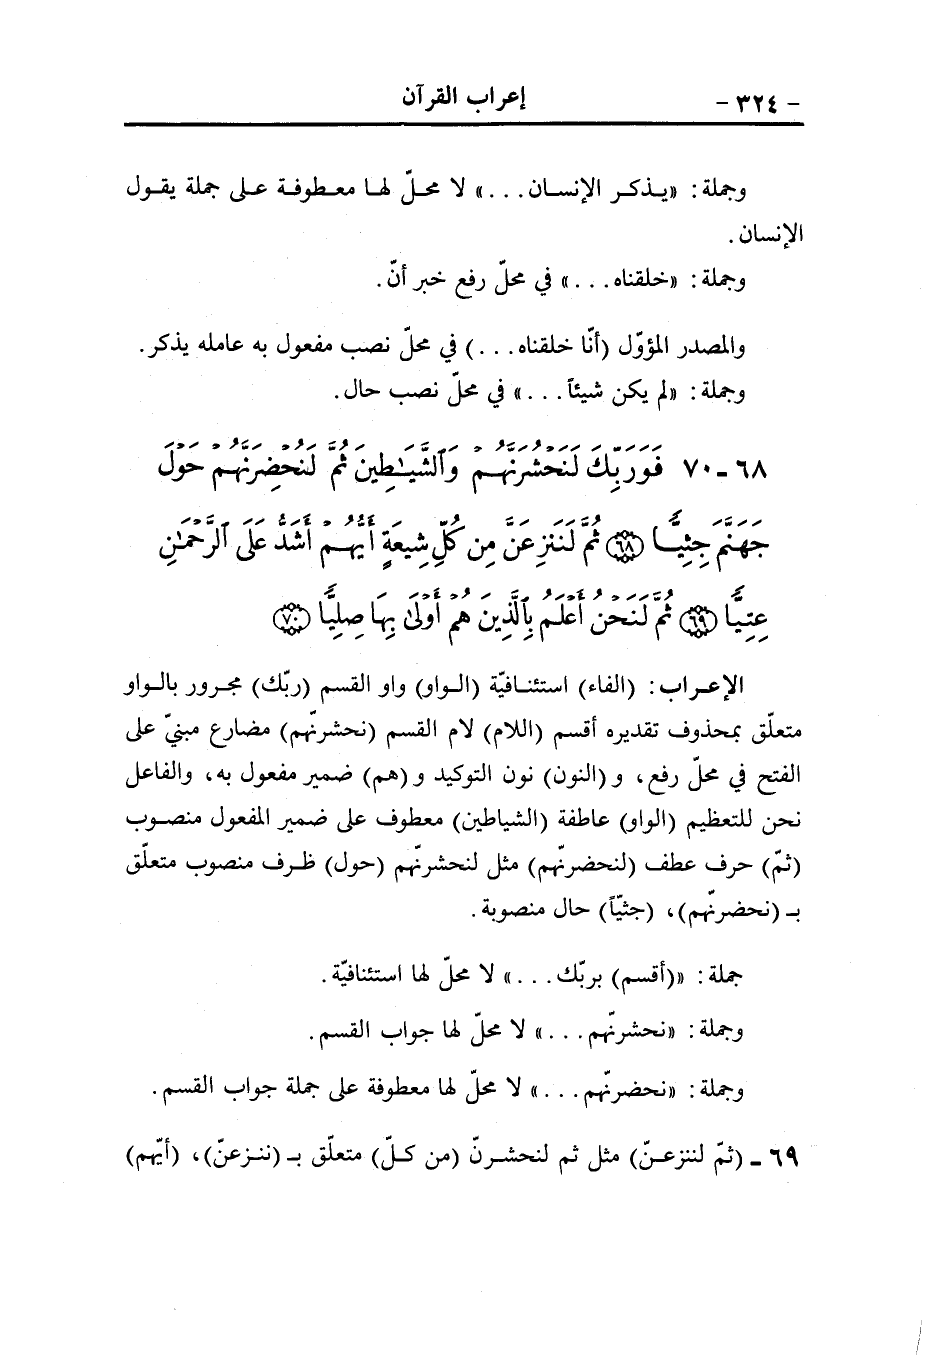 - ٣٢٤ - إعراب القرآن
وجملة: «يـذكـر الإنسـان...» لا محـلّ لهـا معـطوفـة عـلى جملة يقـول
الإنسان.
وجملة: «خلقناه...» في محلّ رفع خبر أنّ.
والمصدر المؤوّل (أنّا خلقناه...) في محلّ نصب مفعول به عامله يذكر.
وجملة: «لم يكن شيئاً...» في محلّ نصب حال.
٦٨ ـ ٧٠ فَوَرَبِّكَ لَنَحْشُرَنَّهُمْ وَٱلشَّيَـٰطِينَ ثُمَّ لَنُحْضِرَنَّهُمْ حَوْلَ
جَهَنَّمَ جِثِيًّـا ٦٨ ثُمَّ لَنَنزِعَنَّ مِن كُلِّ شِيعَةٍ أَيُّهُـمْ أَشَدُّ عَلَى ٱلرَّحْمَـٰنِ
عِتِيًّا ٦٩ ثُمَّ لَنَحْنُ أَعْلَمُ بِٱلَّذِينَ هُمْ أَوْلَىٰ بِهَا صِلِيًّا ٧٠
الإعـراب: (الفاء) استئنـافيّة (الـواو) واو القسم (ربّك) مجـرور بالـواو
متعلّق بمحذوف تقديره أقسم (اللام) لام القسم (نحشرنّهم) مضارع مبنيّ على
الفتح في محلّ رفع، و(النون) نون التوكيد و(هم) ضمير مفعول به، والفاعل
نحن للتعظيم (الواو) عاطفة (الشياطين) معطوف على ضمير المفعول منصـوب
(ثمّ) حرف عطف (لنحضرنّهم) مثل لنحشرنّهم (حول) ظرف منصوب متعلّق
بـ (نحضرنّهم)، (جثيّاً) حال منصوبة.
جملة: «(أقسم) بربّك...» لا محلّ لها استئنافيّة.
وجملة: «نحشرنّهم...» لا محلّ لها جواب القسم.
وجملة: «نحضرنّهم...» لا محلّ لها معطوفة على جملة جواب القسم.
٦٩ ـ (ثمّ لننزعـنّ) مثل ثم لنحشـرنّ (من كـلّ) متعلّق بـ (ننـزعنّ)، (أيّهم)